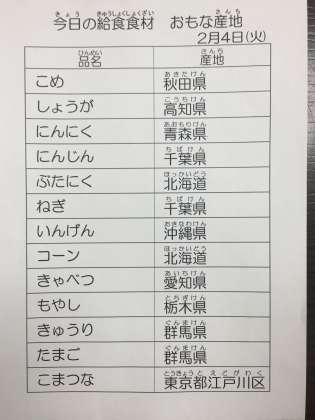 今日の給食食材 おもな産地
2月4日(火)
品名 産地
こめ 秋田県
しょうが 高知県
にんにく 青森県
にんじん 千葉県
ぶたにく 北海道
ねぎ 千葉県
いんげん 沖縄県
コーン 北海道
きゃべつ 愛知県
もやし 栃木県
きゅうり 群馬県
たまご 群馬県
こまつな 東京都江戸川区